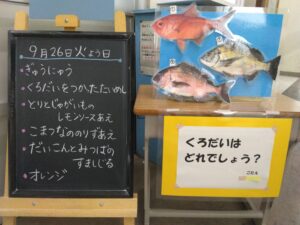 9月26日火よう日
・ぎゅうにゅう
・くろだいをつかったためし
・とりとじゃがいもの
レモンソースあえ
・こまつなののりずあえ
・だいこんとみつばの
すましじる
・オレンジ
くろだいは
どれでしょう？